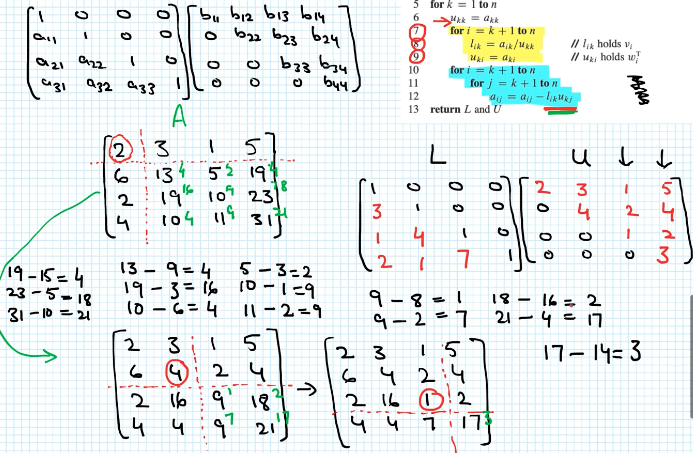 1 0 0 0
a11 1 0 0
a21 a22 1 0
a31 a32 a33 1
b11 b12 b13 b14
0 b22 b23 b24
0 0 b33 b34
0 0 0 b44
5 for k = 1 to n
6 ukk = akk
7 for i = k + 1 to n
8 lik = aik/ukk // lik holds vi
9 uki = aki // uki holds wiᵀ
10 for i = k + 1 to n
11 for j = k + 1 to n
12 aij = aij − lik ukj
13 return L and U
A
2 3 1 5
6 13 4 5 2 19 4
2 19 16 10 9 23 18
4 10 4 11 9 31 21
L
1 0 0 0
3 1 0 0
1 4 1 0
2 1 7 1
U ↓ ↓
2 3 1 5
0 4 2 4
0 0 1 2
0 0 0 3
19 − 15 = 4
23 − 5 = 18
31 − 10 = 21
13 − 9 = 4 5 − 3 = 2
19 − 3 = 16 10 − 1 = 9
10 − 6 = 4 11 − 2 = 9
9 − 8 = 1 18 − 16 = 2
9 − 2 = 7 21 − 4 = 17
17 − 14 = 3
2 3 1 5
6 4 2 4
2 16 9 1 18 2
4 4 9 7 21 17
→
2 3 1 5
6 4 2 4
2 16 1 2
4 4 7 17 3